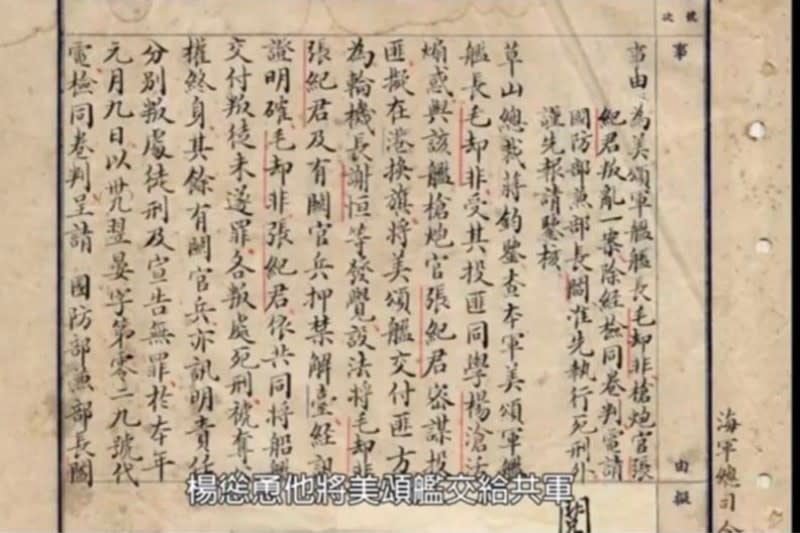 海軍總司令
號次
事由擬
事由：為美頌軍艦艦長毛却非槍炮官張
紀君叛亂一案除經檢同卷判電請
國防部兼部長閻准先執行死刑外
謹先報請鑒核
草山總裁蔣鈞鑒查本軍美頌軍艦
艦長毛却非受其投匪同學楊滄活
煽惑與該艦槍炮官張紀君密謀投
匪擬在港換旗將美頌艦交付匪方
為輪機長謝恒等發覺設法將毛却非
張紀君及有關官兵抑禁解臺經訊
證明確毛却非張紀君依共同將船艦
交付叛徒未遂罪各叛處死刑褫奪
權終身其餘有關官兵亦訊明責任
分別叛處徒刑及宣告無罪於本年
元月九日以卅九翌晏字第零二九號代
電檢同卷判呈請 國防部兼部長閻
閱
楊慫恿他將美頌艦交給共軍